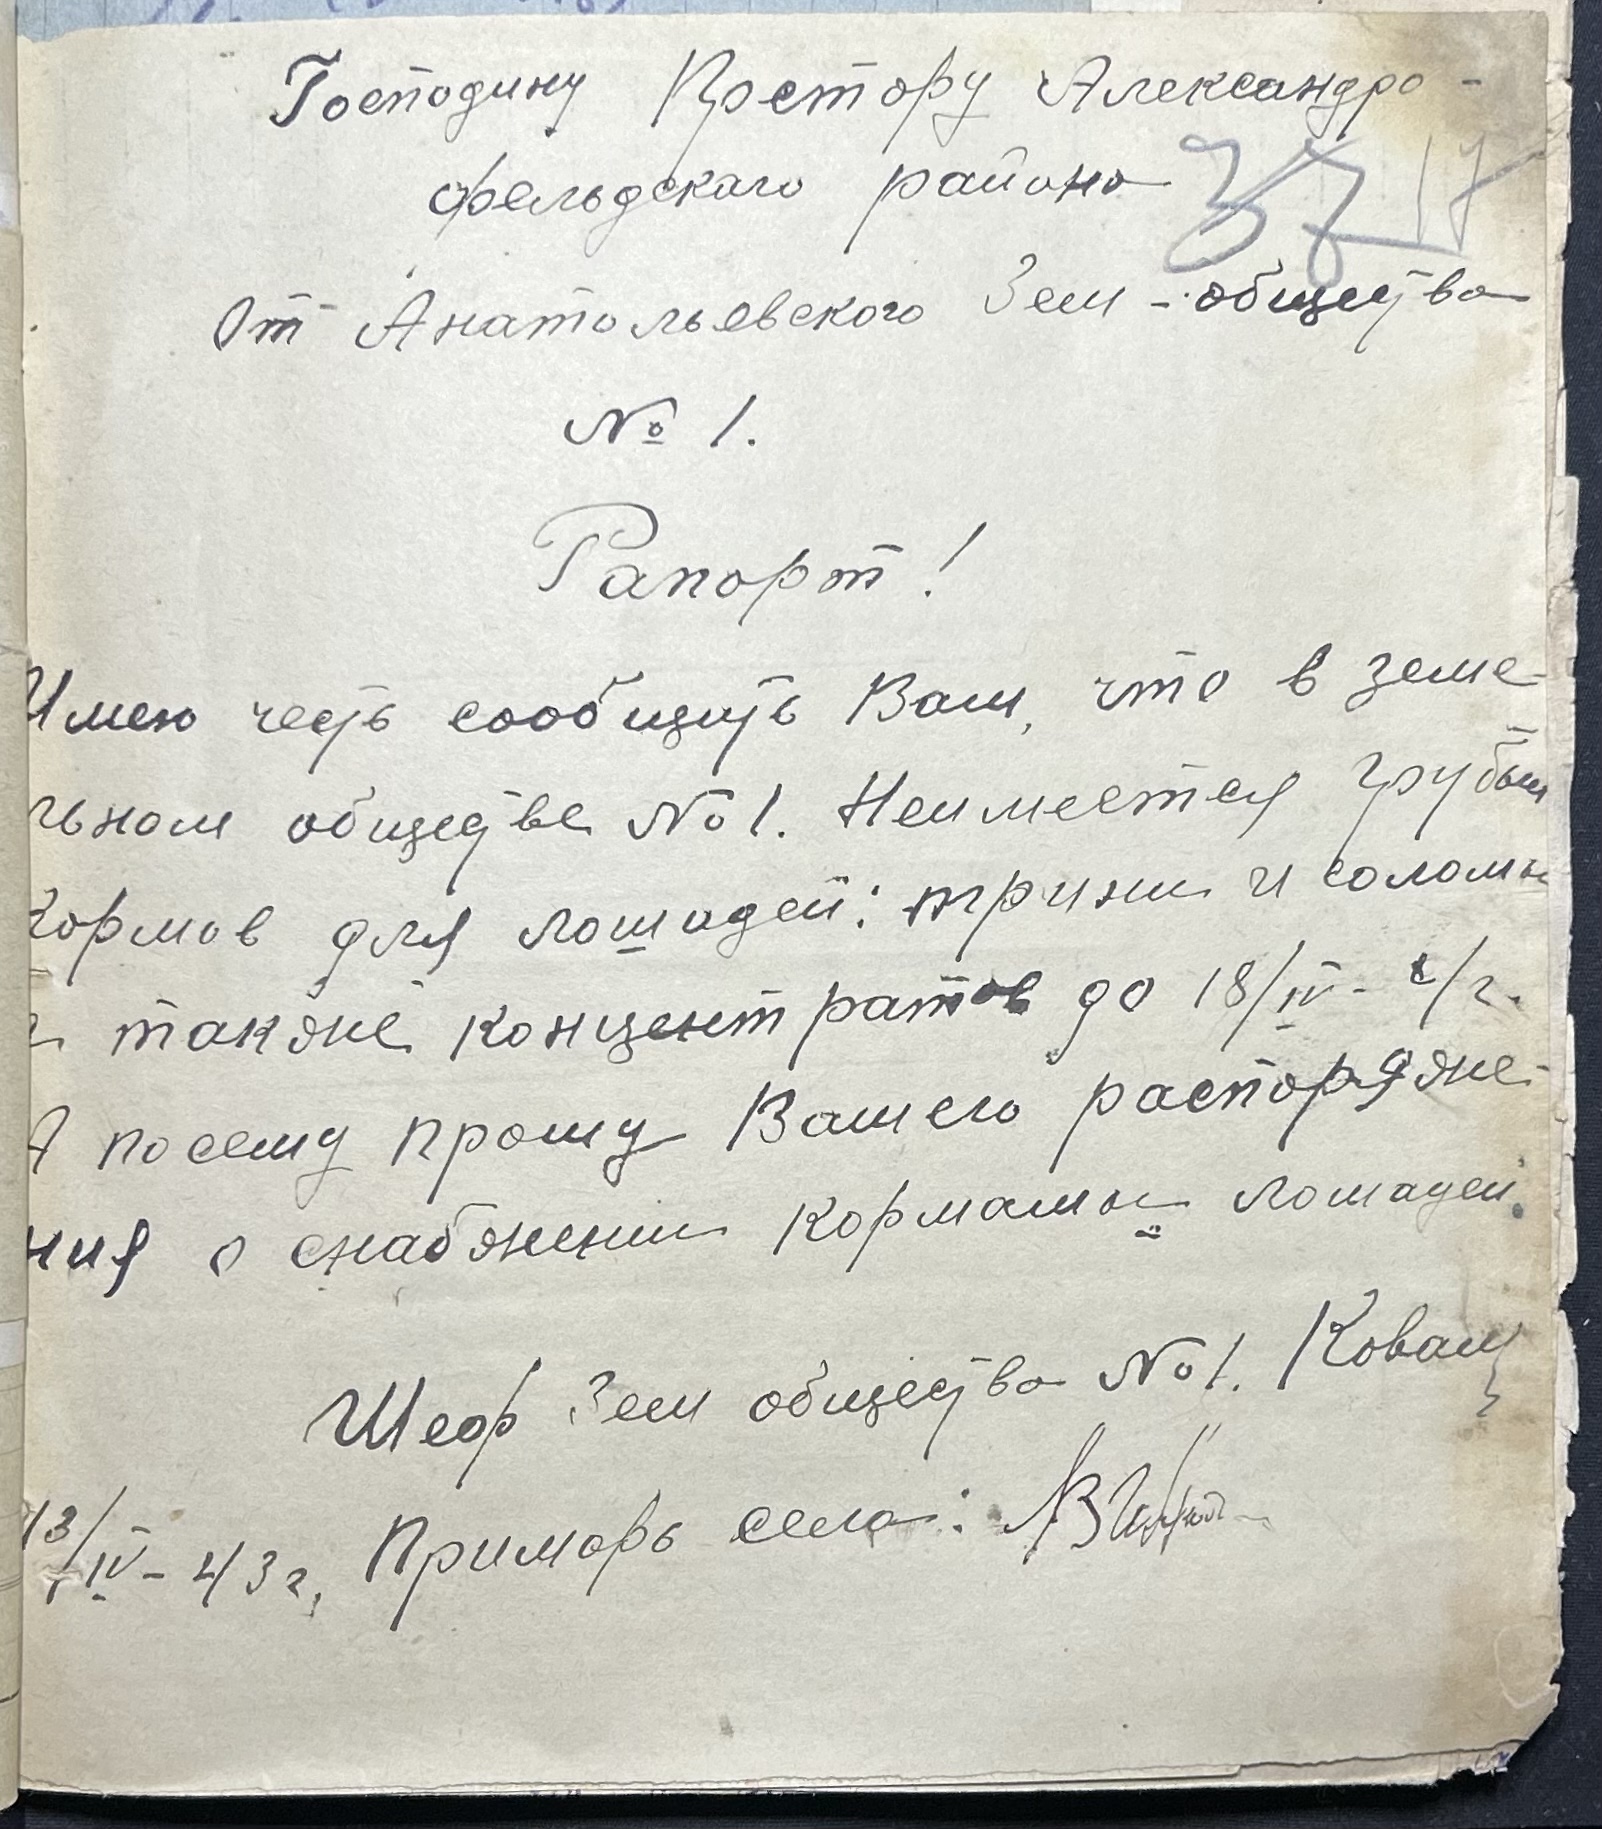 Господину Претору Александро-
фельдскаго района
37 17
От Анатольевского Зем-общества
№ 1.
Рапорт!
Имею честь сообщить Вам, что в земе-
льном обществе № 1. Неимеется грубых
кормов для лошадей: тирини и соломы
а также концентратов до 18/IV - с/г.
А посему прошу Вашего распоряже-
ния о снабжении кормамы лошадей.
Шеф Зем общества № 1. Коваль
13/IV - 43 г, Примарь села: